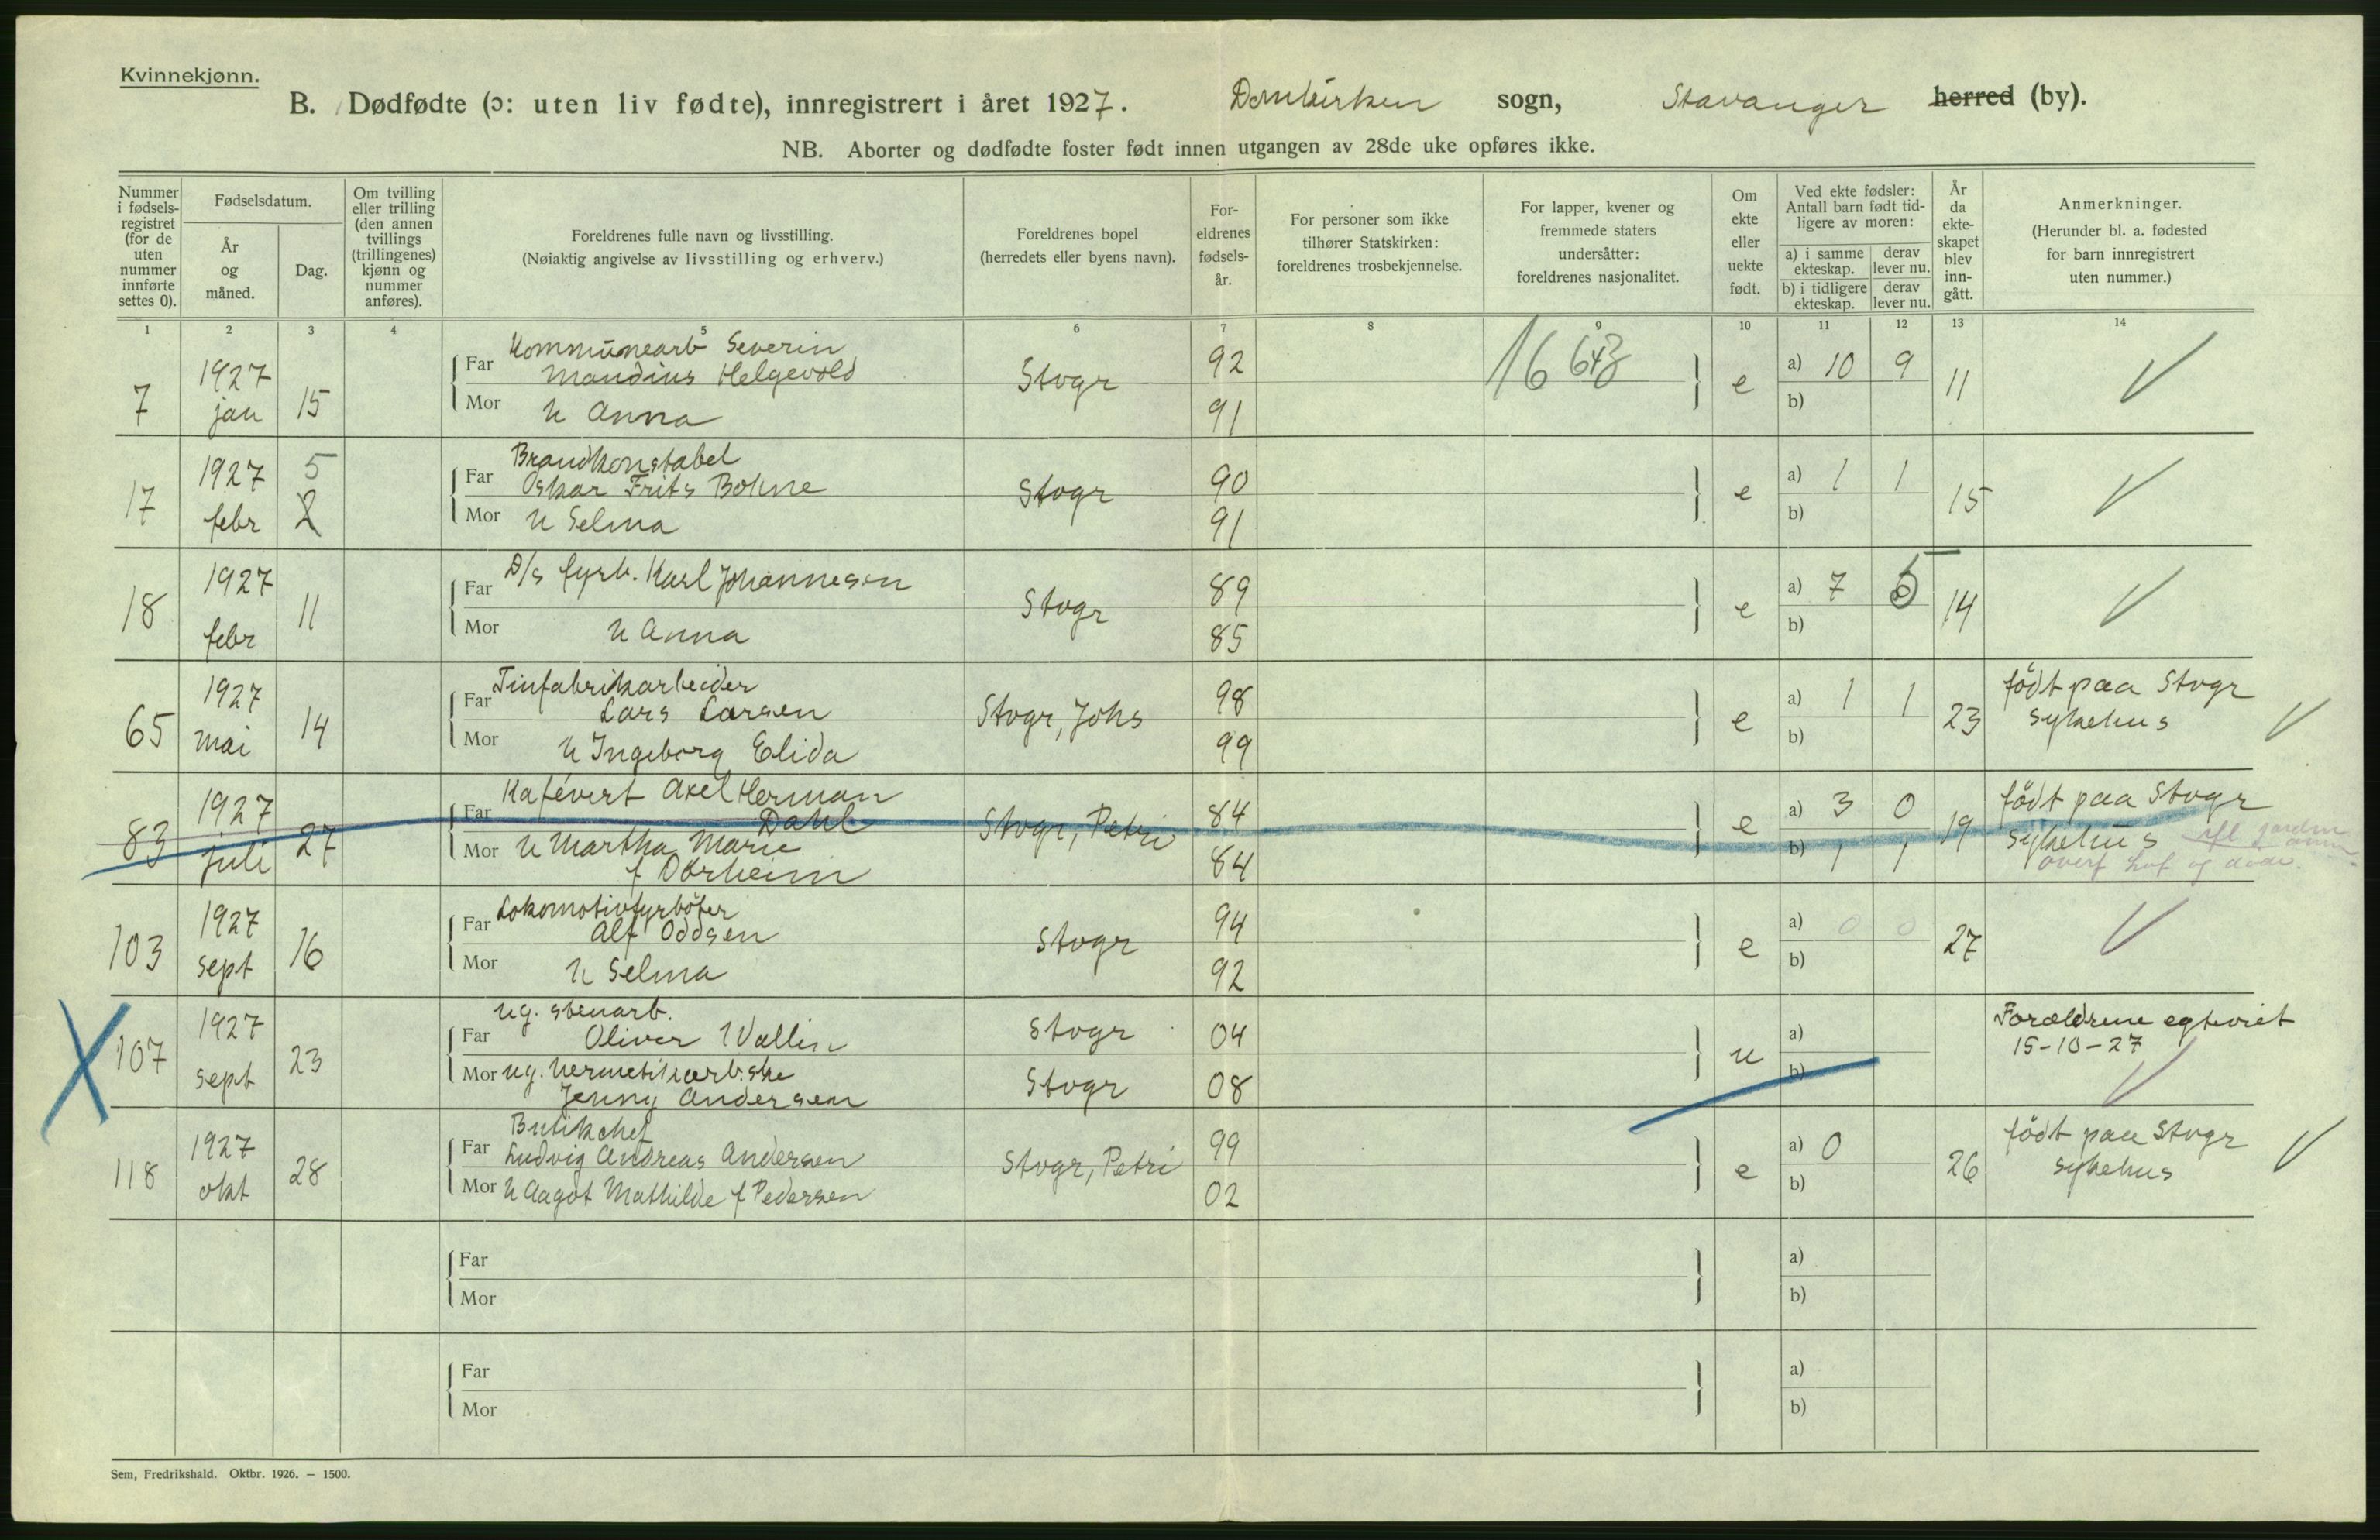 Kvinnekjønn.
B. Dødfødte (ɔ: uten liv fødte), innregistrert i året 1927. Domkirken sogn, Stavanger herred (by).
NB. Aborter og dødfødte foster født innen utgangen av 28de uke opføres ikke.
Nummer i fødsels-registret (for de uten nummer innførte settes 0).
Fødselsdatum.
År og måned.
Dag.
Om tvilling eller trilling (den annen tvillings (trillingenes) kjønn og nummer anføres).
Foreldrenes fulle navn og livsstilling.
(Nøiaktig angivelse av livsstilling og erhverv.)
Foreldrenes bopel
(herredets eller byens navn).
For-eldrenes fødsels-år.
For personer som ikke tilhører Statskirken: foreldrenes trosbekjennelse.
For lapper, kvener og fremmede staters undersåtter: foreldrenes nasjonalitet.
Om ekte eller uekte født.
Ved ekte fødsler: Antall barn født tid-ligere av moren:
a) i samme ekteskap.
derav lever nu.
b) i tidligere ekteskap.
derav lever nu.
År da ekte-skapet blev inn-gått.
Anmerkninger.
(Herunder bl. a. fødested for barn innregistrert uten nummer.)
1 2 3 4 5 6 7 8 9 10 11 12 13 14
7 1927 jan 15
Far Kommunearb Severin
Mandius Helgevold
Mor u Anna
Stvgr 92 91 16 e a) 10 9 b) 11
17 1927 febr 5 2
Brandkonstabel
Far Oskar Frits Bohne
Mor u Selma
Stvgr 90 91 e a) 1 1 b) 15
18 1927 febr 11
Far D/s fyrb. Karl Johannesen
Mor u Anna
Stvgr 89 85 e a) 7 5 b) 14
65 1927 mai 14
Tinfabrikarbeider
Far Lars Larsen
Mor u Ingeborg Elida
Stvgr, Johs 98 99 e a) 1 1 b) 23
født paa Stvgr
sykehus
83 1927 juli 27
Kafévert Axel Herman
Far Dahl
Mor u Martha Marie
f Dorheim
Stvgr, Petri 84 84 e a) 3 0 b) 1 1 19
født paa Stvgr
sykehus
103 1927 sept 16
Lokomotivfyrbøter
Far Alf Oddsen
Mor u Selma
Stvgr 94 92 e a) 0 0 b) 27
107 1927 sept 23
ug. stenarb.
Far Oliver Wallin
Mor ug. hermetikarb.ske
Jenny Andersen
Stvgr 04
Stvgr 08
u a) b)
Forældrene egteviet
15-10-27
118 1927 okt 28
Butikchef
Far Ludvig Andreas Andersen
Mor u Aagot Mathilde f Pedersen
Stvgr, Petri 99 02 e a) 0 b) 26
født paa Stvgr
sykehus
Far a)
Mor b)
Far a)
Mor b)
Sem, Fredrikshald. Oktbr. 1926. – 1500.